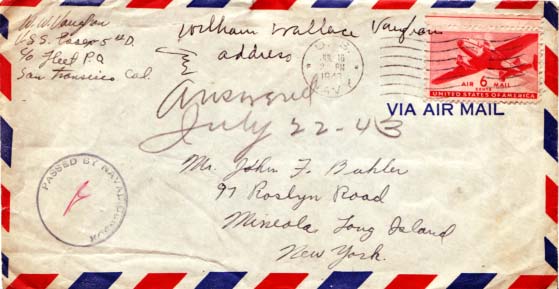 W. W. Vaughan
U.S.S. Case
c/o Fleet P.O.
San Francisco Cal.
William Wallace Vaughan
address
U.S.
JUL 10
PM
1943
NAVY
AIR 6 MAIL
CENTS
UNITED STATES OF AMERICA
VIA AIR MAIL
Answered
July 22-43
Mr. John F. Buhler
97 Roslyn Road
Mineola, Long Island
New York.
PASSED BY NAVAL CENSOR